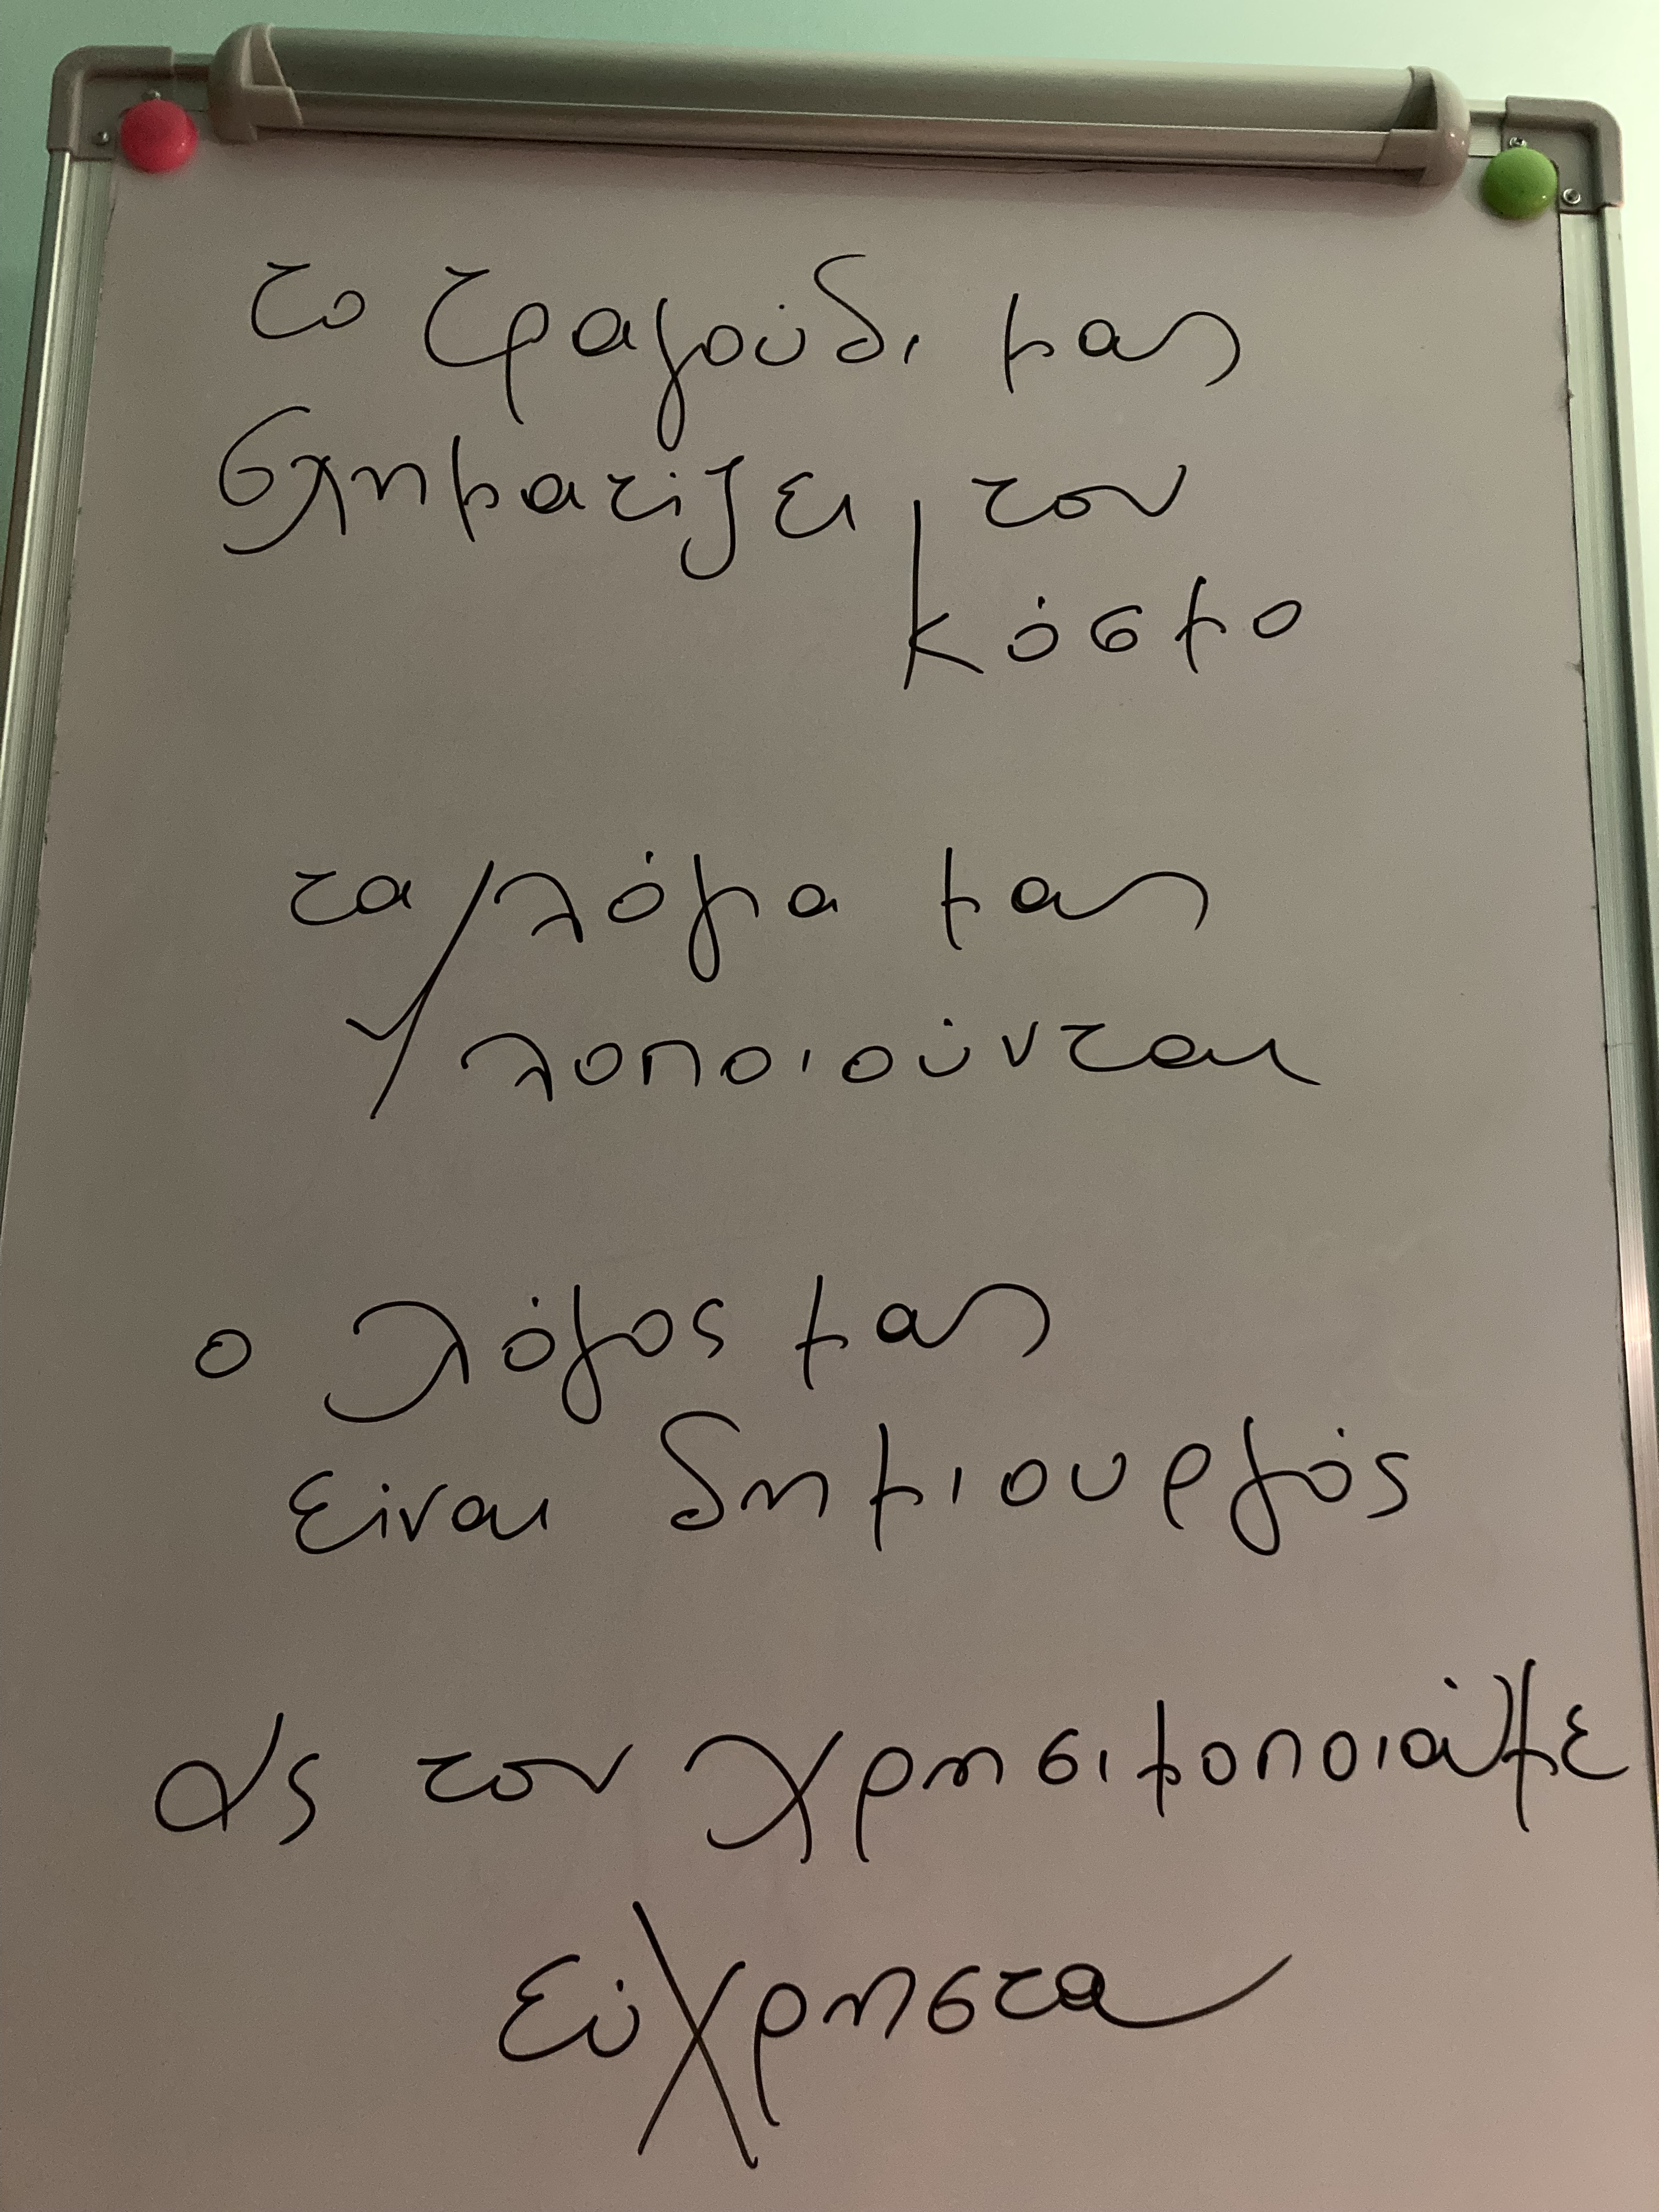 το τραγούδι μας
σχηματίζει τον
κόσμο
τα λόγια μας
υλοποιούνται
ο λόγος μας
είναι δημιουργός
ας τον χρησιμοποιούμε
εύχρηστα